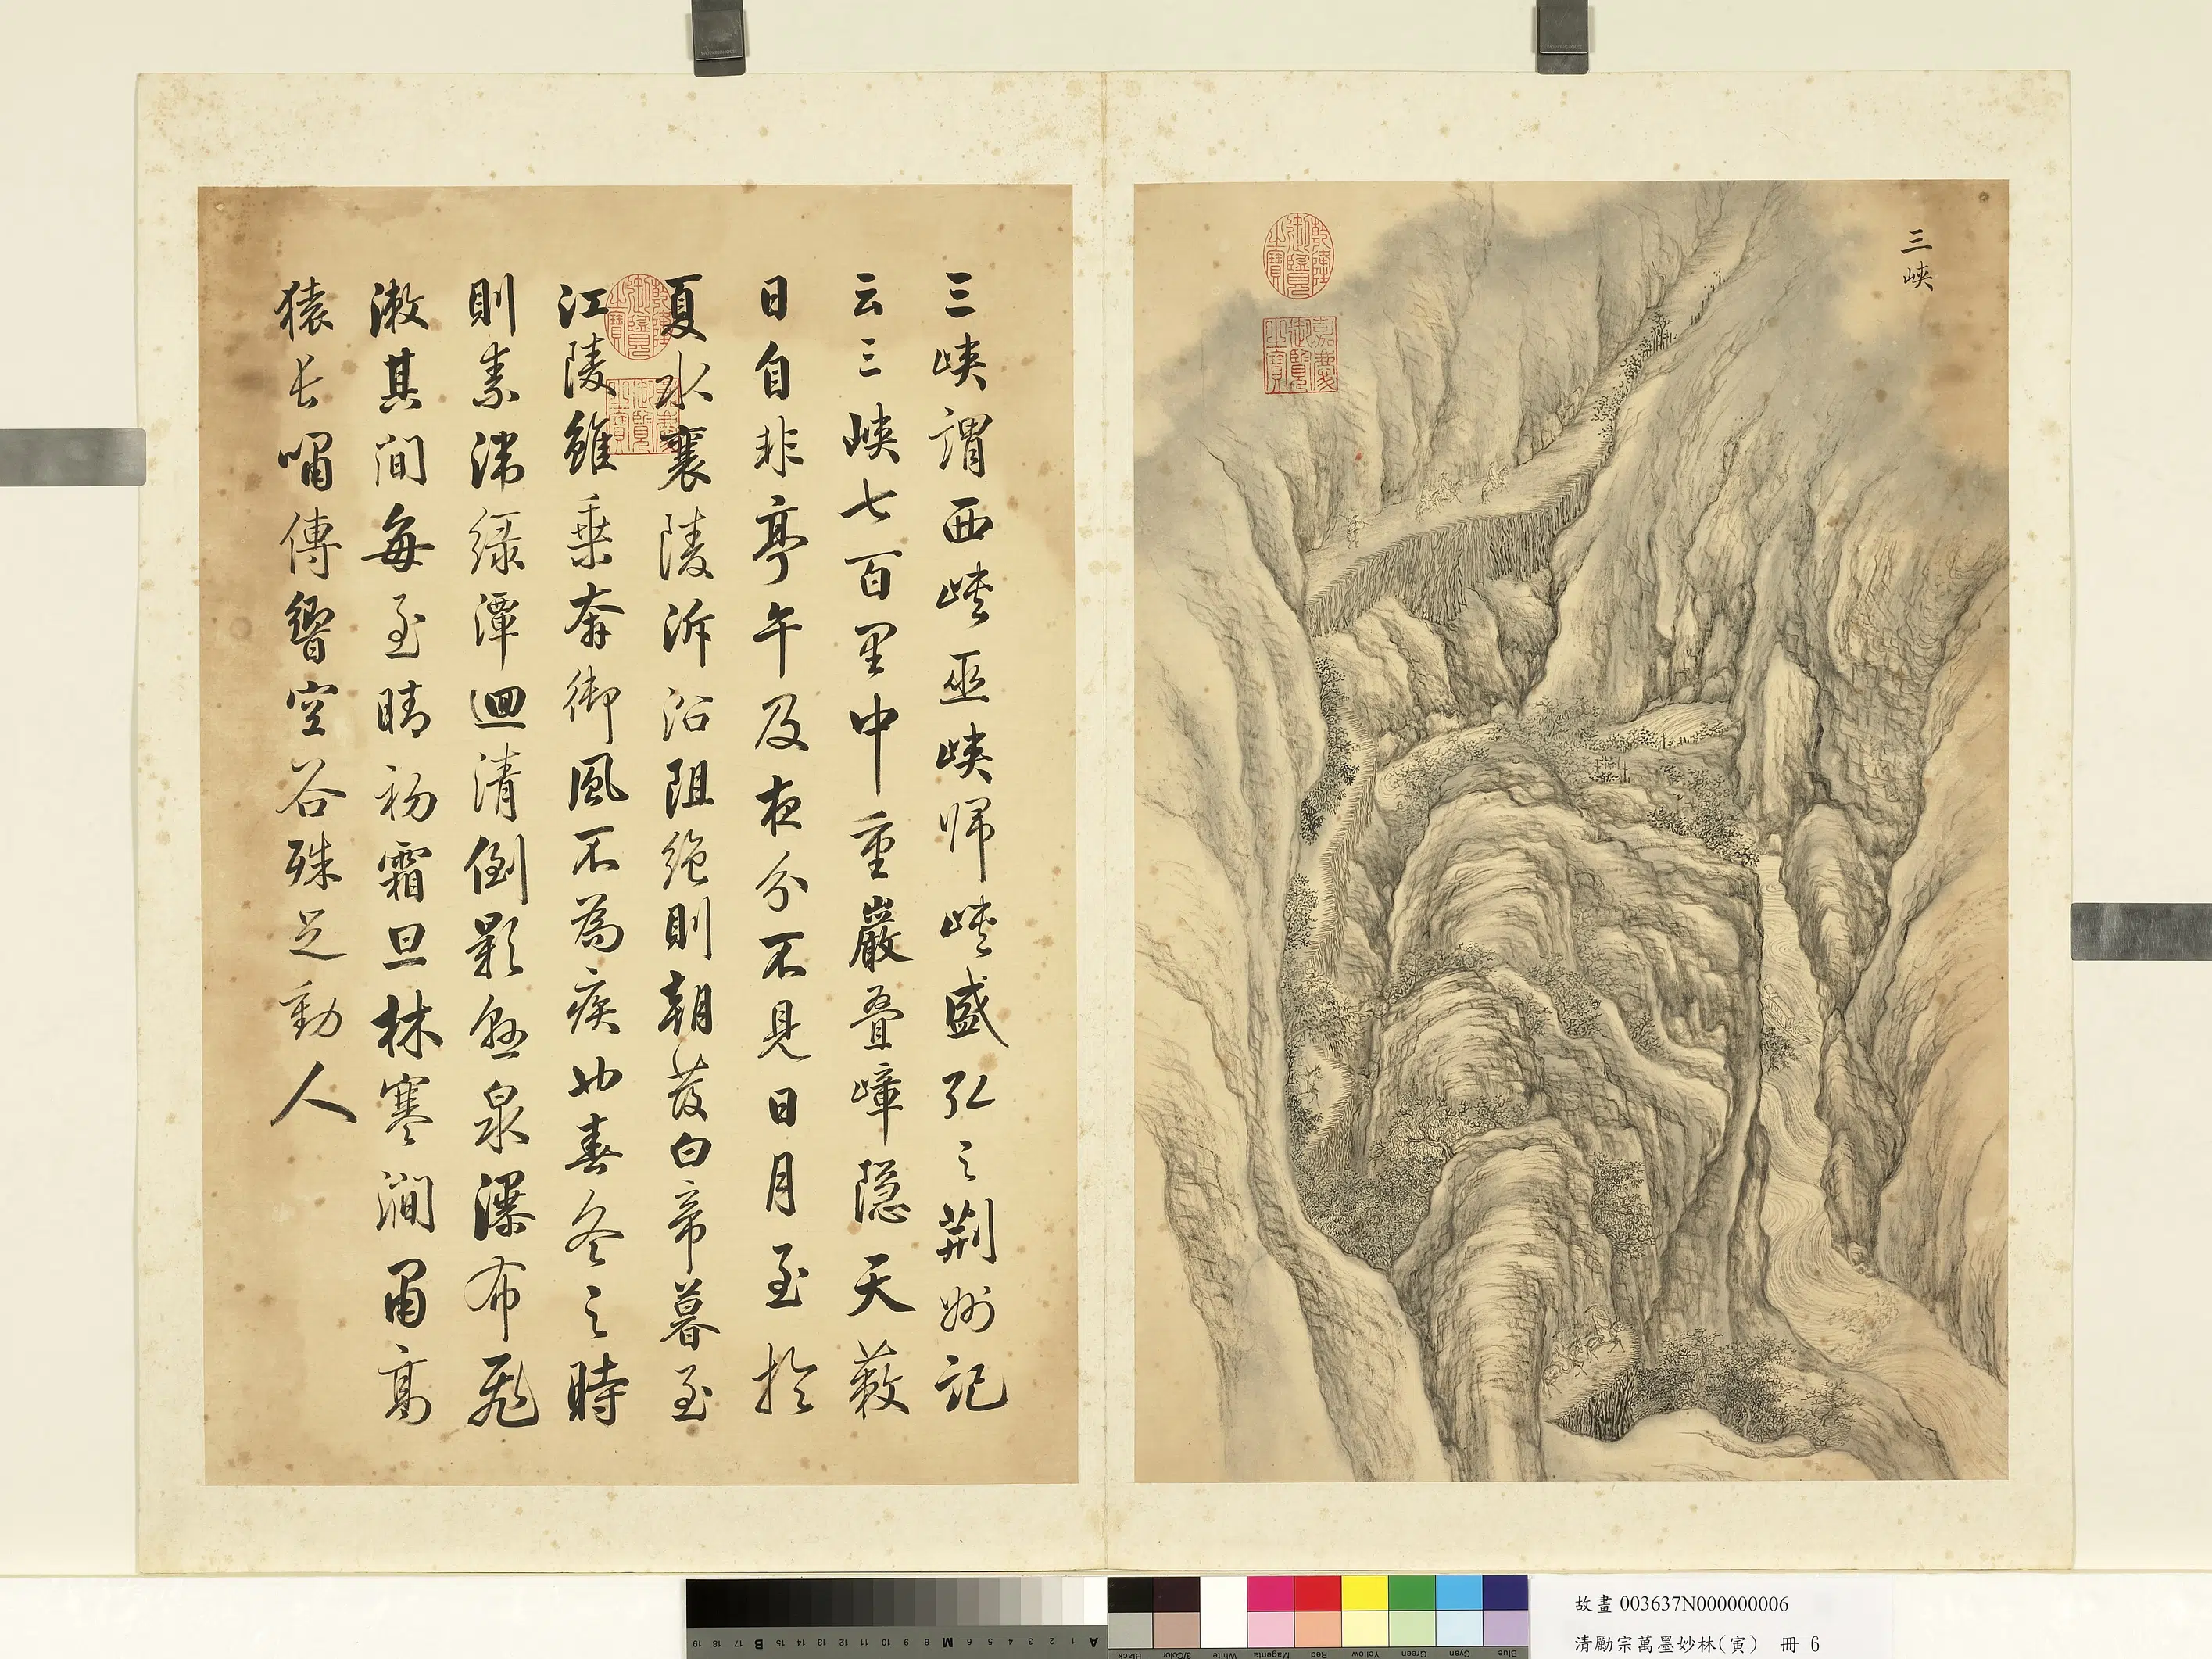 三峽
乾隆御覽之寶
嘉慶御覽之寶
三峽謂西峽巫峽歸峽盛弘之荆州記
云三峽七百里中重巖疊嶂隱天蔽
日自非亭午及夜分不見日月至於
夏水襄陵泝沿阻絶則朝發白帝暮至
江陵雖乗奔御風不為疾也春冬之時
則素湍緑潭迴清倒影懸泉瀑布飛
漱其間每至晴初霜旦林寒澗肅高
猿長嘯傳響空谷殊足動人
乾隆御覽之寶
嘉慶御覽之寶
故畫 003637N000000006
清勵宗萬墨妙林(寅) 冊 6
19 18 17 B 16 15 14 13 12 11 10 9 8 M 7 6 5 4 3 2 1 A
Blue Cyan Green Yellow Red Magenta White 3/Color Black